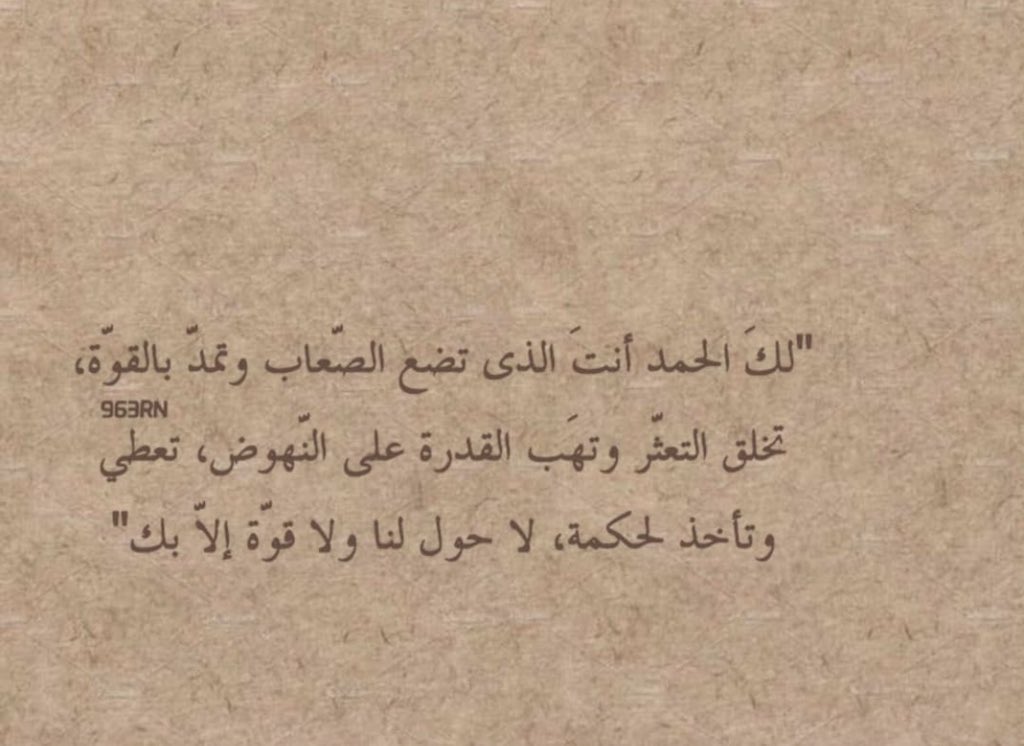 "لكَ الحمد أنتَ الذى تضع الصّعاب وتمدّ بالقوّة،
963RN
تخلق التعثّر وتهَب القدرة على النّهوض، تعطي
وتأخذ لحكمة، لا حول لنا ولا قوّة إلاّ بك"